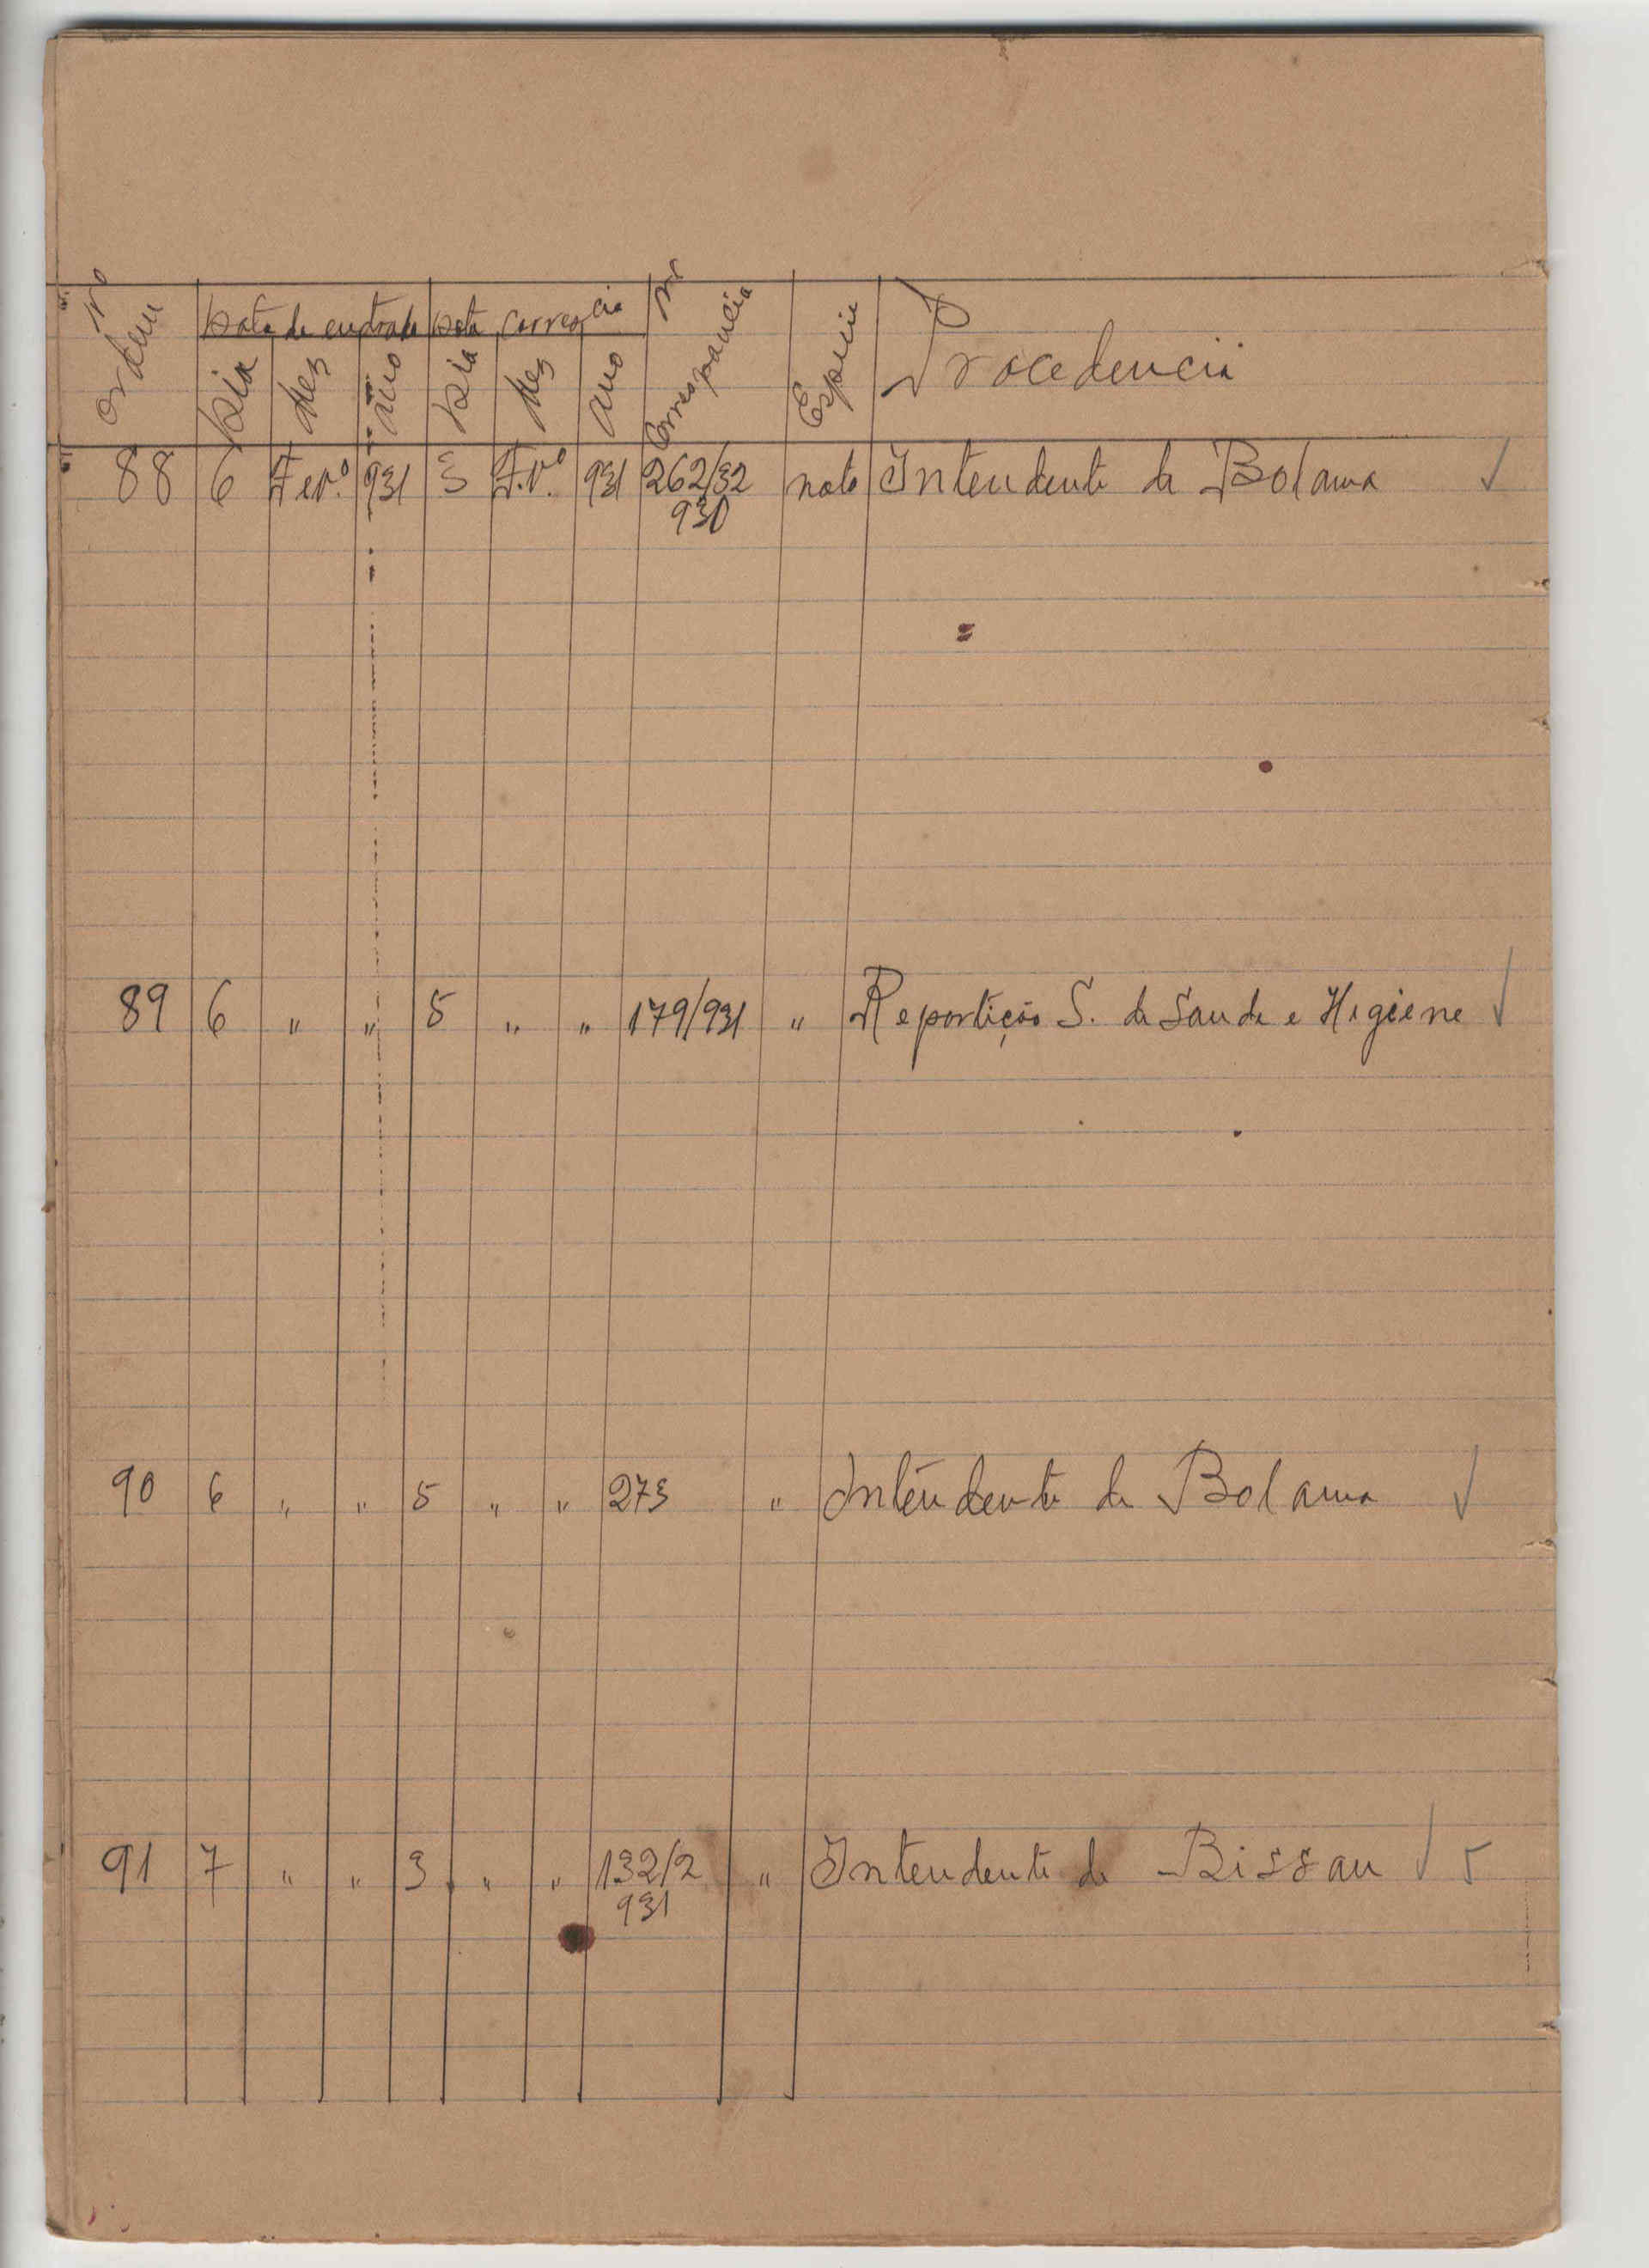 nº ordem Data de entrada Data corresp.cia nº Correspondencia Especie Procedencia
Dia Mez Ano Dia Mez Ano
88 6 Fev.º 931 3 F.v.º 931 262/32 nota Intendente de Bolama ✓
930
89 6 " " 5 " " 179/931 " Repartição S. de Saude e Higiene ✓
90 6 " " 5 " " 273 " Intendente de Bolama ✓
91 7 " " 3 " " 132/2 " Intendente de Bissau ✓
931